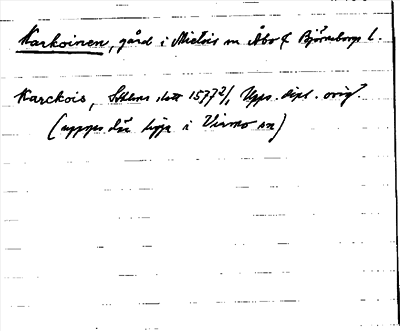 Karkoinen, gård i Mietois sn Åbo f. Björneborgs l.
Karckois, Sthlms slott 1577 2/1 Upps. dipl. orig.
(uppges där ligga i Virmo sn)